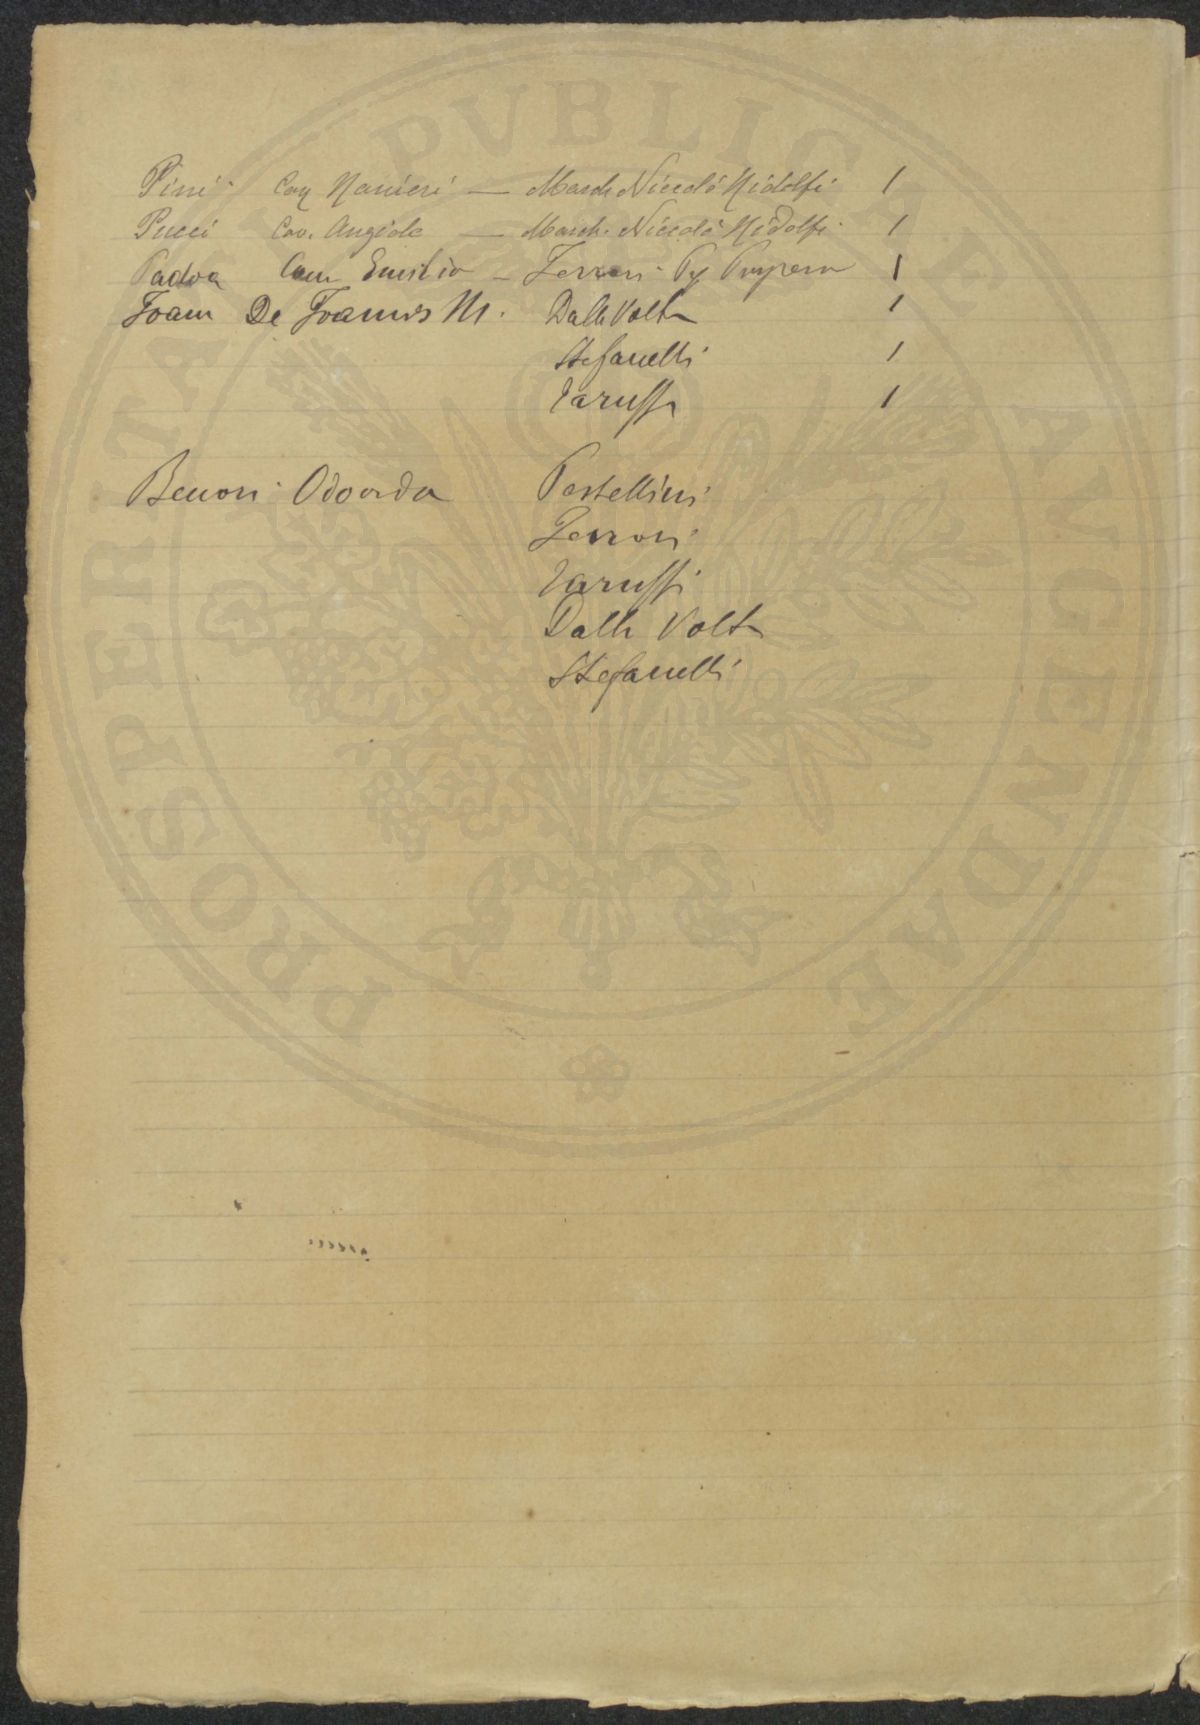 Pini Cav Ranieri — March Niccolò Ridolfi 1
Pucci Cav. Angiolo — March. Niccolò Ridolfi 1
Padoa Cam Emilio — Ferrari 1
De Joannis M. Dalla Volta 1
Stefanelli 1
Taruffi 1
Benori Odoardo Pestellini
Ferrari
Taruffi
Dalla Volta
Stefanelli
PROSPERITATI PVBLICAE AVGENDAE